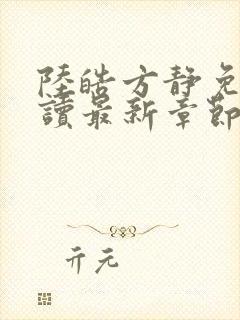 陸皓方靜免
讀最新章節
亓元